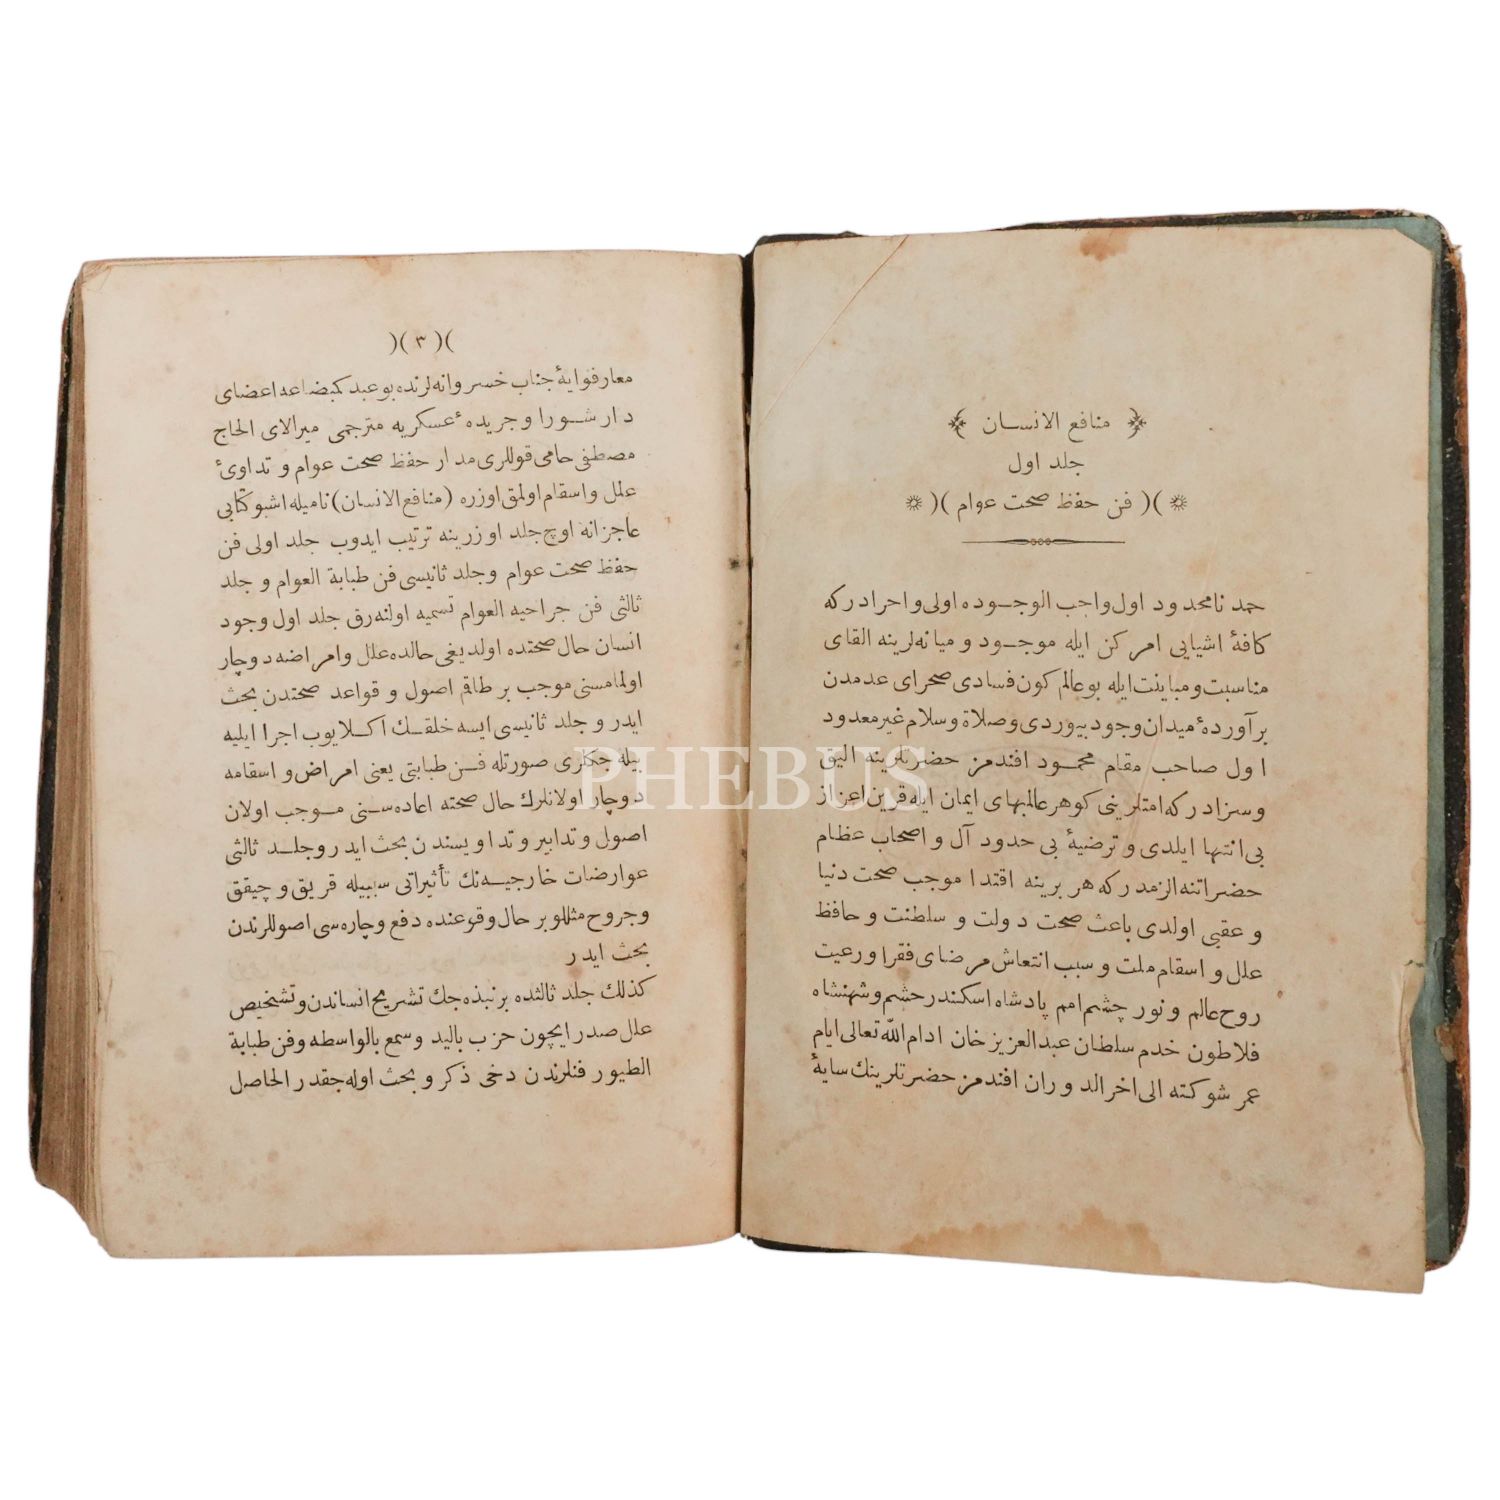 منافع الانسان
جلد اول
)( فن حفظ صحت عوام )(
حمد نامحدود اول واجب الوجوده اولی و احرادركه
كافهٔ اشیایی امر كن ایله موجود و میانه‌لرینه القای
مناسبت و مباینت ایله بو عالم كون فسادی صحرای عدمدن
برآوردهٔ میدان وجود بیوردی و صلاة و سلام غیر معدود
اول صاحب مقام محمود افندمز حضرتلرینه الیق
و سزادركه امتلرینی كوهر عالمبهای ایمان ایله قرین اعزاز
بی‌انتها ایلدی و ترضیهٔ بی حدود آل و اصحاب عظام
حضراتنه الزمدركه هر برینه اقتدا موجب صحت دنیا
و عقبی اولدی باعث صحت دولت و سلطنت و حافظ
علل و اسقام ملت و سبب انتعاش مرضای فقرا و رعیت
روح عالم و نور چشم امم پادشاه اسكندر حشم و شهنشاه
فلاطون خدم سلطان عبدالعزیز خان ادام الله تعالی ایام
عمر شوكته الی اخر الدوران افندمز حضرتلرینك سایهٔ
)( ٣ )(
معارفوایهٔ جناب خسروانه‌لرنده بو عبد كمبضاعه اعضای
دار شورا و جریدهٔ عسكریه مترجمی میرالای الحاج
مصطفی حامی قوللری مدار حفظ صحت عوام و تداوئ
علل و اسقام اولمق اوزره (منافع الانسان) نامیله اشبو كتابی
عاجزانه اوچ جلد اوزرینه ترتیب ایدوب جلد اولی فن
حفظ صحت عوام و جلد ثانیسی فن طبابة العوام و جلد
ثالثی فن جراحیه العوام تسمیه اولنه‌رق جلد اول وجود
انسان حال صحتده اولدیغی حالده علل و امراضه دوچار
اولمامسنی موجب بر طاقم اصول و قواعد صحتدن بحث
ایدر و جلد ثانیسی ایسه خلقك اكلایوب اجرا ایلیه
بیله جكلری صورتله فن طبابتی یعنی امراض و اسقامه
دوچار اولانلرك حال صحته اعاده‌سنی موجب اولان
اصول و تدابیر و تداویسندن بحث ایدر و جلد ثالثی
عوارضات خارجیه‌نك تأثیراتی سببیله قریق و چیقق
و جروح مثللو بر حال وقوعنده دفع و چاره‌سی اصوللرندن
بحث ایدر
كذلك جلد ثالثده بر نبذه‌جك تشریح انساندن و تشخیص
علل صدر ایچون حزب بالید و سمع بالواسطه و فن طبابة
الطیور فنلرندن دخی ذكر و بحث اوله‌جقدر الحاصل
PHEBUS